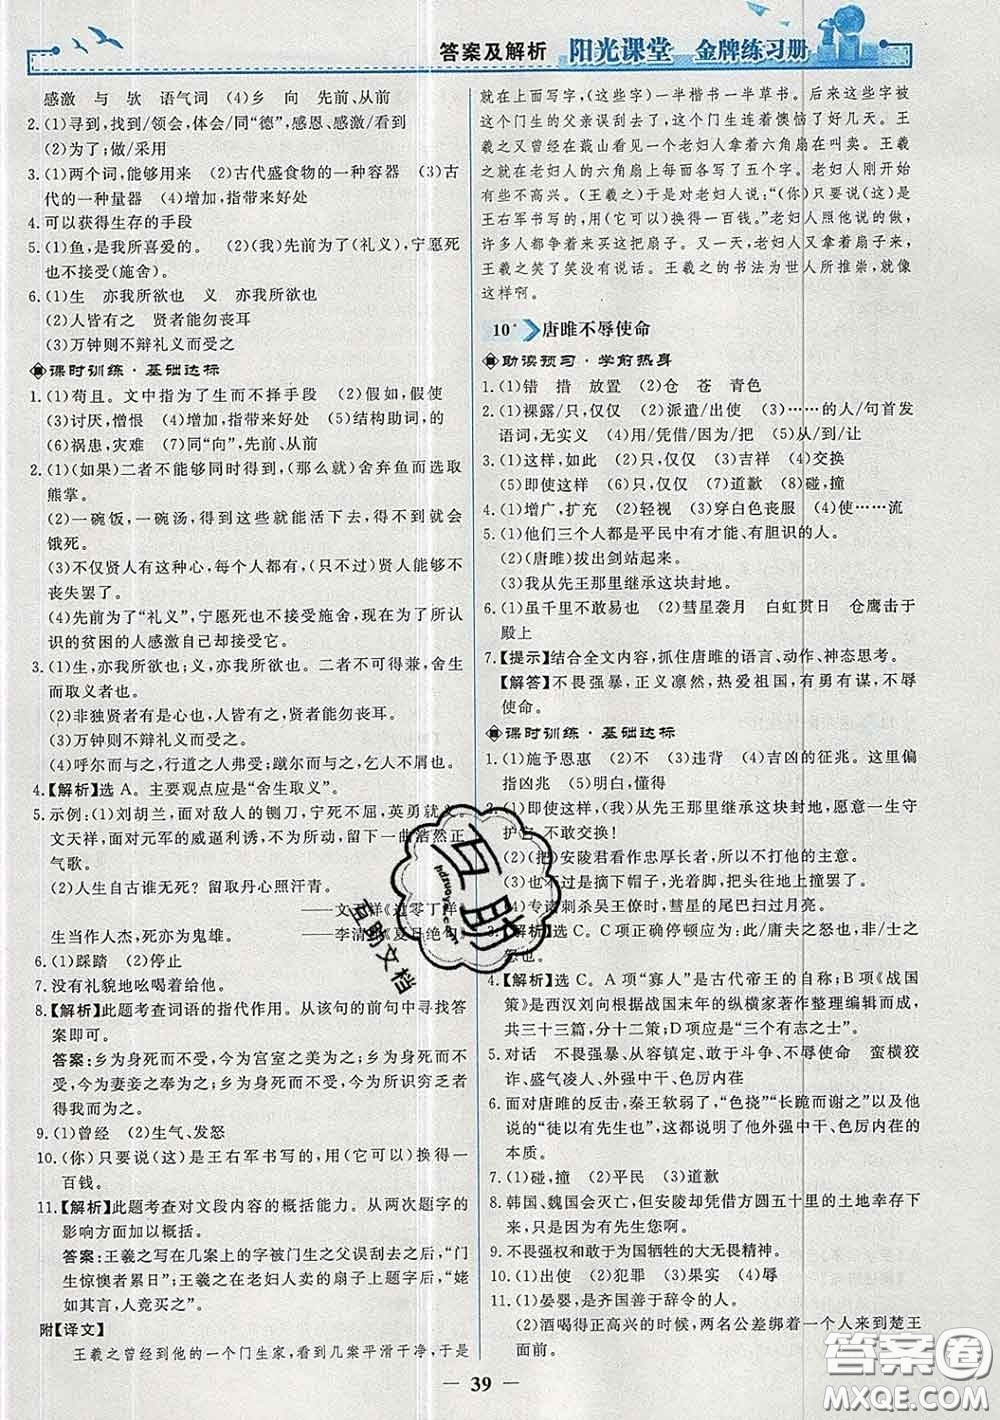 答案及解析 阳光课堂 金牌练习册
感激 与 欤 语气词 (4)乡 向 先前、从前
2.(1)寻到,找到/领会,体会/同“德”,感恩、感激/看到
(2)为了;做/采用
3.(1)两个词,能够用来 (2)古代盛食物的一种容器 (3)古
代的一种量器 (4)增加,指带来好处
4.可以获得生存的手段
5.(1)鱼,是我所喜爱的。 (2)(我)先前为了(礼义),宁愿死
也不接受(施舍)。
6.(1)生 亦我所欲也 义 亦我所欲也
(2)人皆有之 贤者能勿丧耳
(3)万钟则不辩礼义而受之
课时训练·基础达标
1.(1)苟且。文中指为了生而不择手段 (2)假如,假使
(3)讨厌,憎恨 (4)增加,指带来好处 (5)结构助词,的
(6)祸患,灾难 (7)同“向”,先前、从前
2.(1)(如果)二者不能够同时得到,(那么就)舍弃鱼而选取
熊掌。
(2)一碗饭,一碗汤,得到这些就能活下去,得不到就会
饿死。
(3)不仅贤人有这种思想,每个人都有,只不过贤人能够不
丧失罢了。
(4)先前为了“礼义”,宁愿死也不接受施舍,现在为了所认
识的贫困的人感激自己却接受它。
3.(1)生,亦我所欲也;义,亦我所欲也。二者不可得兼,舍生
而取义者也。
(2)非独贤者有是心也,人皆有之,贤者能勿丧耳。
(3)万钟则不辩礼义而受之。
(4)呼尔而与之,行道之人弗受;蹴尔而与之,乞人不屑也。
4.【解析】选 A。主要观点应是“舍生取义”。
5.示例:(1)刘胡兰,面对敌人的铡刀,宁死不屈,英勇就义。
文天祥,面对元军的威逼利诱,不为所动,留下一曲浩然正
气歌。
(2)人生自古谁无死?留取丹心照汗青。
——文天祥《过零丁洋》
生当作人杰,死亦为鬼雄。 ——李清照《夏日绝句》
6.(1)踩踏 (2)停止
7.没有礼貌地吆喝着给他。
8.【解析】此题考查词语的指代作用。从该句的前句中寻找答
案即可。
答案:乡为身死而不受,今为宫室之美为之;乡为身死而不
受,今为妻妾之奉为之;乡为身死而不受,今为所识穷乏者
得我而为之。
9.(1)曾经 (2)生气、发怒
10.(你)只要说(这)是王右军书写的,用(它可以)换得一
百钱。
11.【解析】此题考查对文段内容的概括能力。从两次题字的
影响方面加以概括。
答案:王羲之写在几案上的字被门生之父误刮去后,“门
生惊懊者累日”;王羲之在老妇人卖的扇子上题字后,“姥
如其言,人竞买之”。
附【译文】
王羲之曾经到他的一个门生家,看到几案平滑干净,于是
就在上面写字,(这些字)一半楷书一半草书。后来这些字被
这个门生的父亲误刮去了,这个门生连着懊恼了好几天。王
羲之又曾经在蕺山看见一个老妇人拿着六角扇在叫卖。王羲
之就在老妇人的六角扇上面各写了五个字。老妇人刚开始
有些不高兴。(王羲之)于是对老妇人说:“(你)只要说(这)是
王右军书写的,用(它可以)换得一百钱。”老妇人照他说的做,
许多人都争着来买这把扇子。又一天,老妇人又拿着扇子来,
王羲之笑了笑没有说话。王羲之的书法为世人所推崇,就像
这样啊。
10* 唐雎不辱使命
助读预习·学前热身
1.(1)错 措 放置 (2)仓 苍 青色
2.(1)裸露/只,仅仅 (2)派遣/出使 (3)……的人/句首发
语词,无实义 (4)用/凭借/因为/把 (5)从/到/让
3.(1)这样,如此 (2)只,仅仅 (3)吉祥 (4)交换
(5)即使这样 (6)只,仅仅 (7)道歉 (8)碰,撞
4.(1)增广,扩充 (2)轻视 (3)穿白色丧服 (4)……流
5.(1)他们三个人都是平民中有才有、有胆识的人。
(2)(唐雎)拔出剑站起来。
(3)我从先王那里继承这块封地。
6.(1)虽千里不敢易也 (2)彗星袭月 白虹贯日 仓鹰击于
殿上
7.【提示】结合全文内容,抓住唐雎的语言、动作、神态思考。
【解答】不畏强暴,正义凛然,热爱祖国,有勇有谋,不辱
使命。
课时训练·基础达标
1.(1)施予恩惠 (2)不 (3)违背 (4)吉凶的征兆。这里偏
指凶兆 (5)明白,懂得
2.(1)即使这样,(我)从先王那里继承这块封地,愿意一生守
护它,不敢交换!
(2)(把)安陵君看作忠厚长者,所以不打他的主意。
(3)也不过是摘下帽子,光着脚,把头往地上撞罢了。
(4)专诸刺杀吴王僚时,彗星的尾巴扫过月亮。
3.【解析】选 C。C项正确停顿应为:此/庸夫之怒也,非/士之
怒也。
4.【解析】选 C。A 项“寡人”是古代帝王的自称;B 项《战国
策》是西汉刘向根据战国末年的纵横家著作整理编辑而成,
共三十三篇,分十二策;D项应是“三个有志之士”。
5.对话 不畏强暴、从容镇定、敢于斗争、不辱使命 蛮横狡
诈、盛气凌人、外强中干、色厉内荏
6.面对唐雎的反击,秦王软弱了,“色挠”“长跪而谢之”以及他
说的“徒以有先生也”可以说明了他外强中干、色厉内荏的
本质。
7.(1)碰,撞 (2)平民 (3)道歉
8.韩国、魏国会灭亡,但安陵却凭借方圆五十里的土地幸存下
来,只是因为有先生您啊。
9.不畏强权和敢于为国牺牲的大无畏精神。
10.(1)出使 (2)犯罪 (3)果实 (4)辱
11.(1)晏婴,是齐国善于辞令的人。
(2)酒喝得正高兴的时候,两名公差绑着一个人来到楚王
面前。
— 39 —
互助文档
答案圈
MXQE.COM